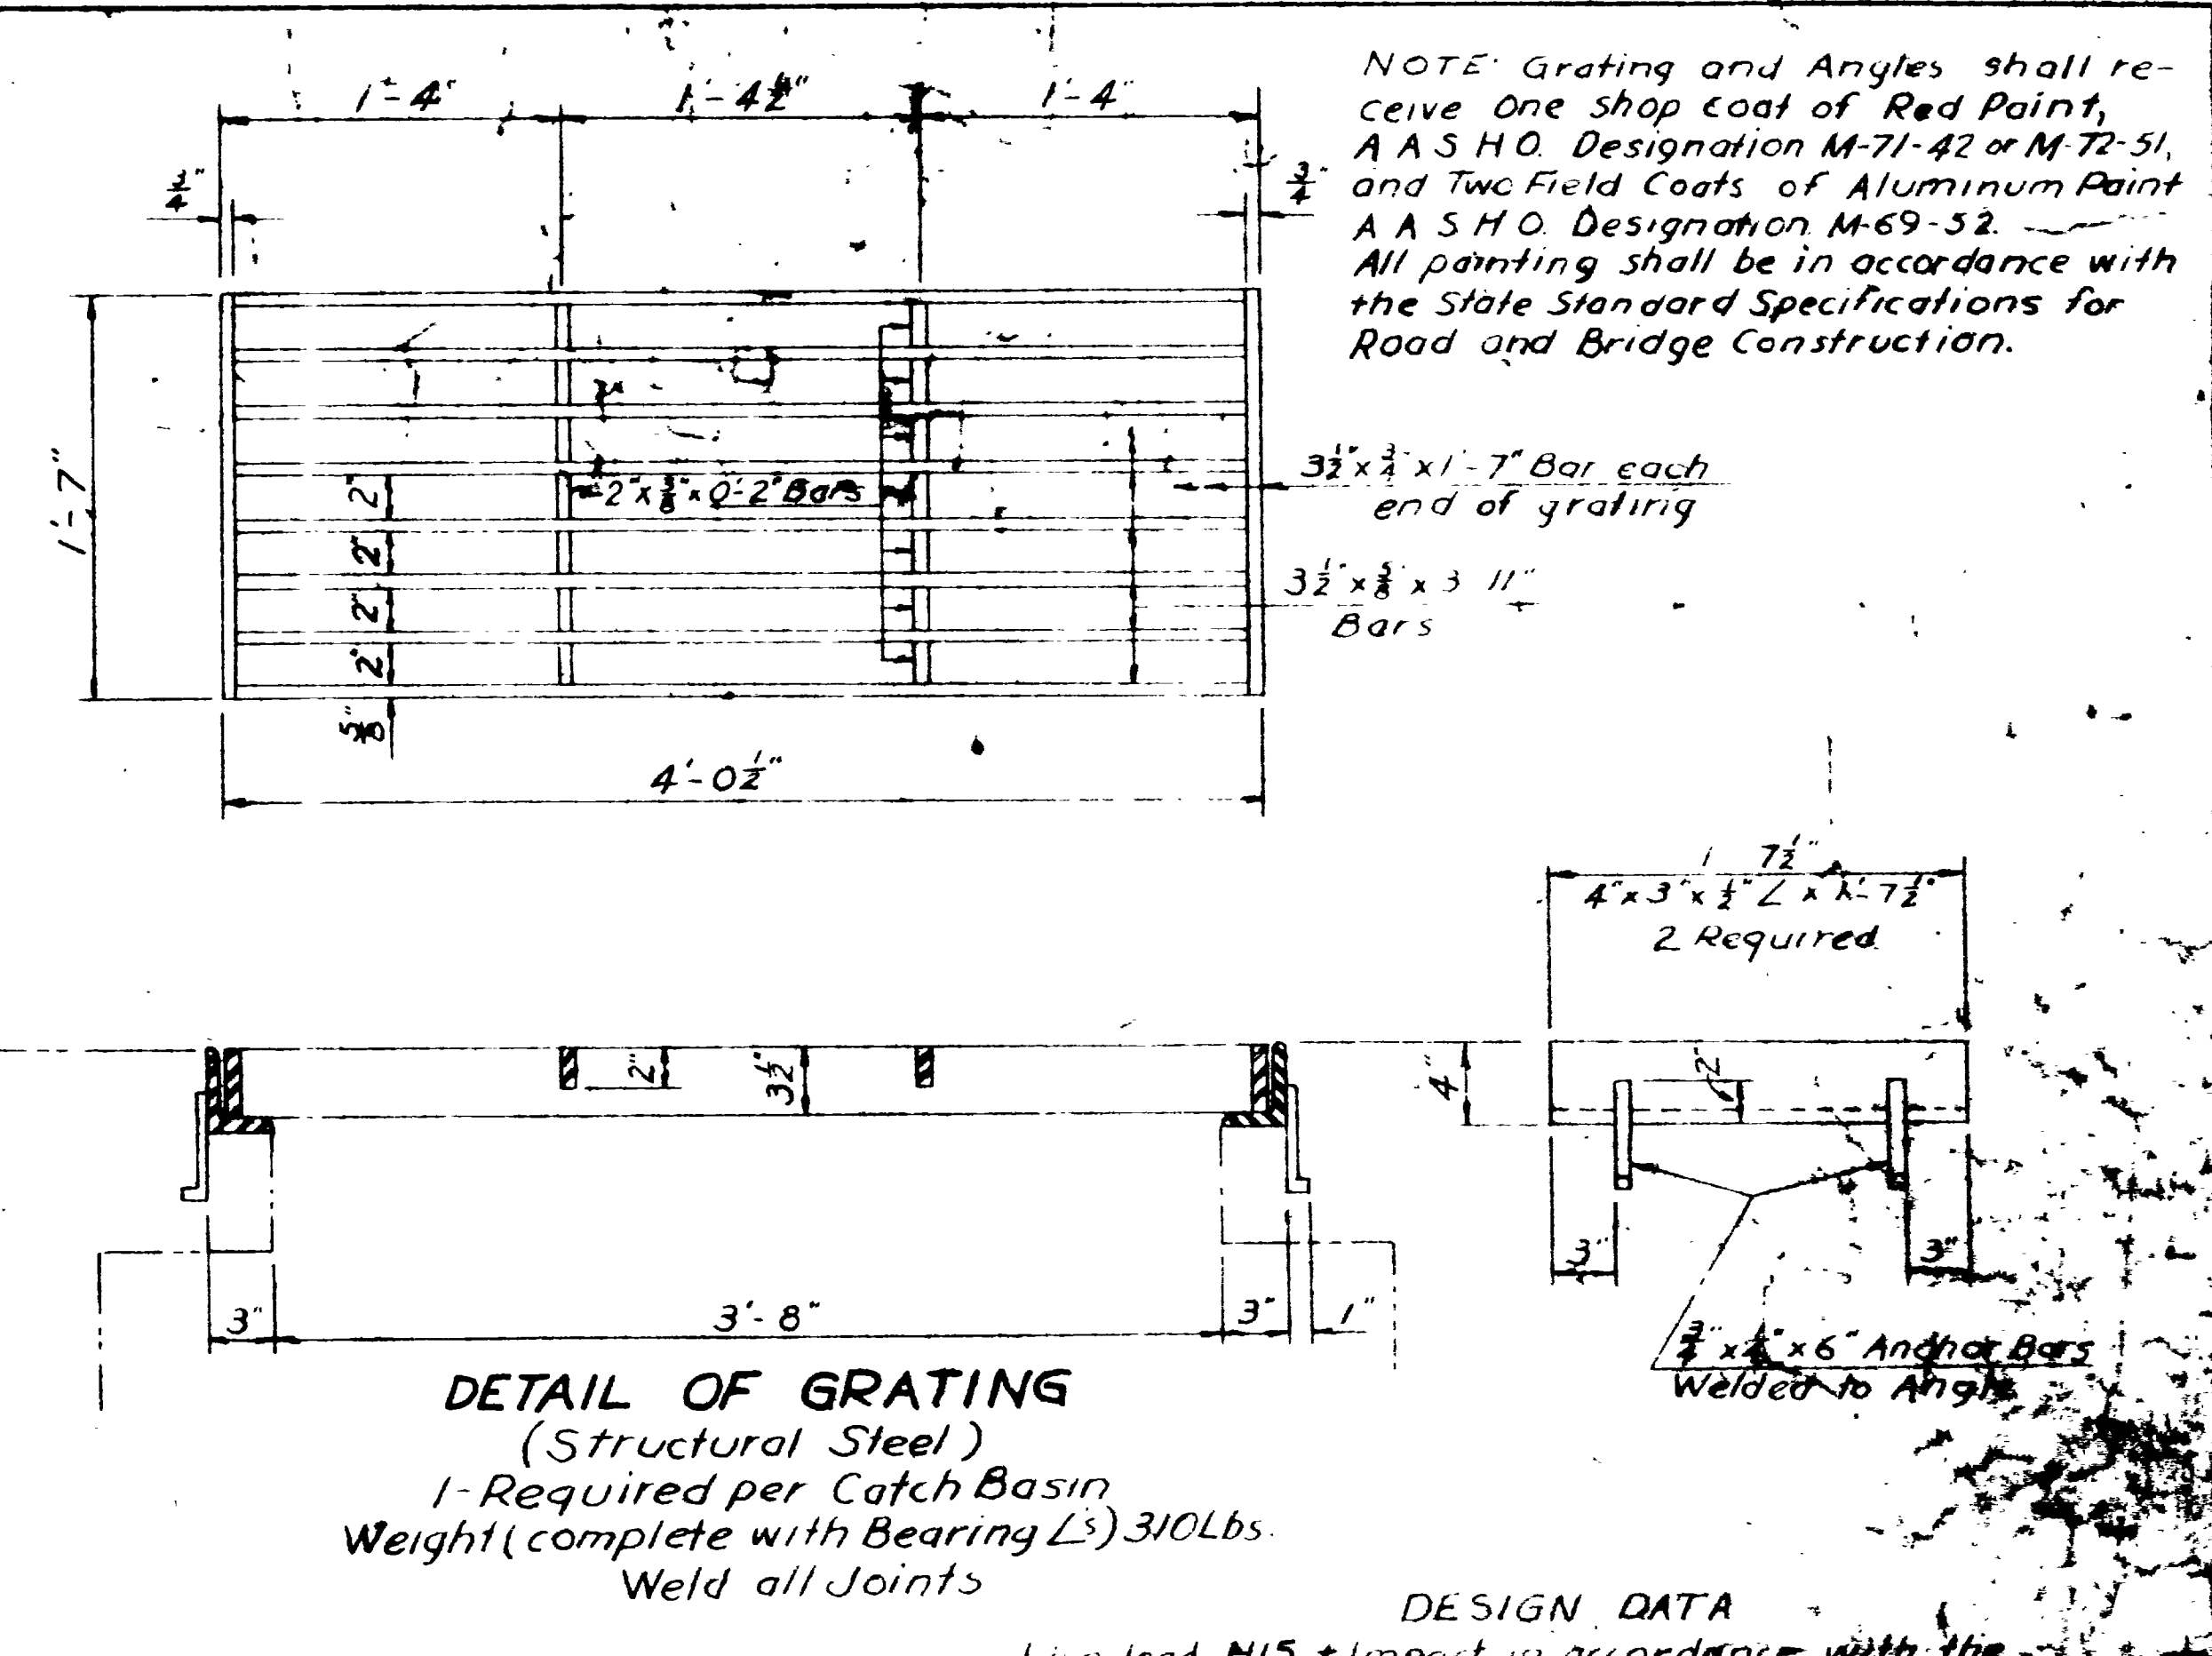 1'-4"
1'-4½"
1'-4"
NOTE: Grating and Angles shall re-
ceive one shop coat of Red Paint,
A A S H O. Designation M-71-42 or M-72-51,
and Two Field Coats of Aluminum Paint
A A S H O. Designation M-69-52.
All painting shall be in accordance with
the State Standard Specifications for
Road and Bridge Construction.
¾"
¾"
1'-7"
2"
2"
2"
2"
⅝"
2" x ⅝" x 0'-2" Bars
3½" x ¾" x 1'-7" Bar each
end of grating
3½" x ⅝" x 3 11"
Bars
4'-0½"
1 7½"
4" x 3" x ½" ∠ x 1'-7½"
2 Required
2"
3½"
4"
2"
3"
3'-8"
3"
1"
3"
3"
x 6" Anchor Bars
Welded to Angle
DETAIL OF GRATING
(Structural Steel)
1-Required per Catch Basin
Weight (complete with Bearing ∠s) 310 Lbs.
Weld all Joints
DESIGN DATA
Live load H15 + Impact in accordance with the